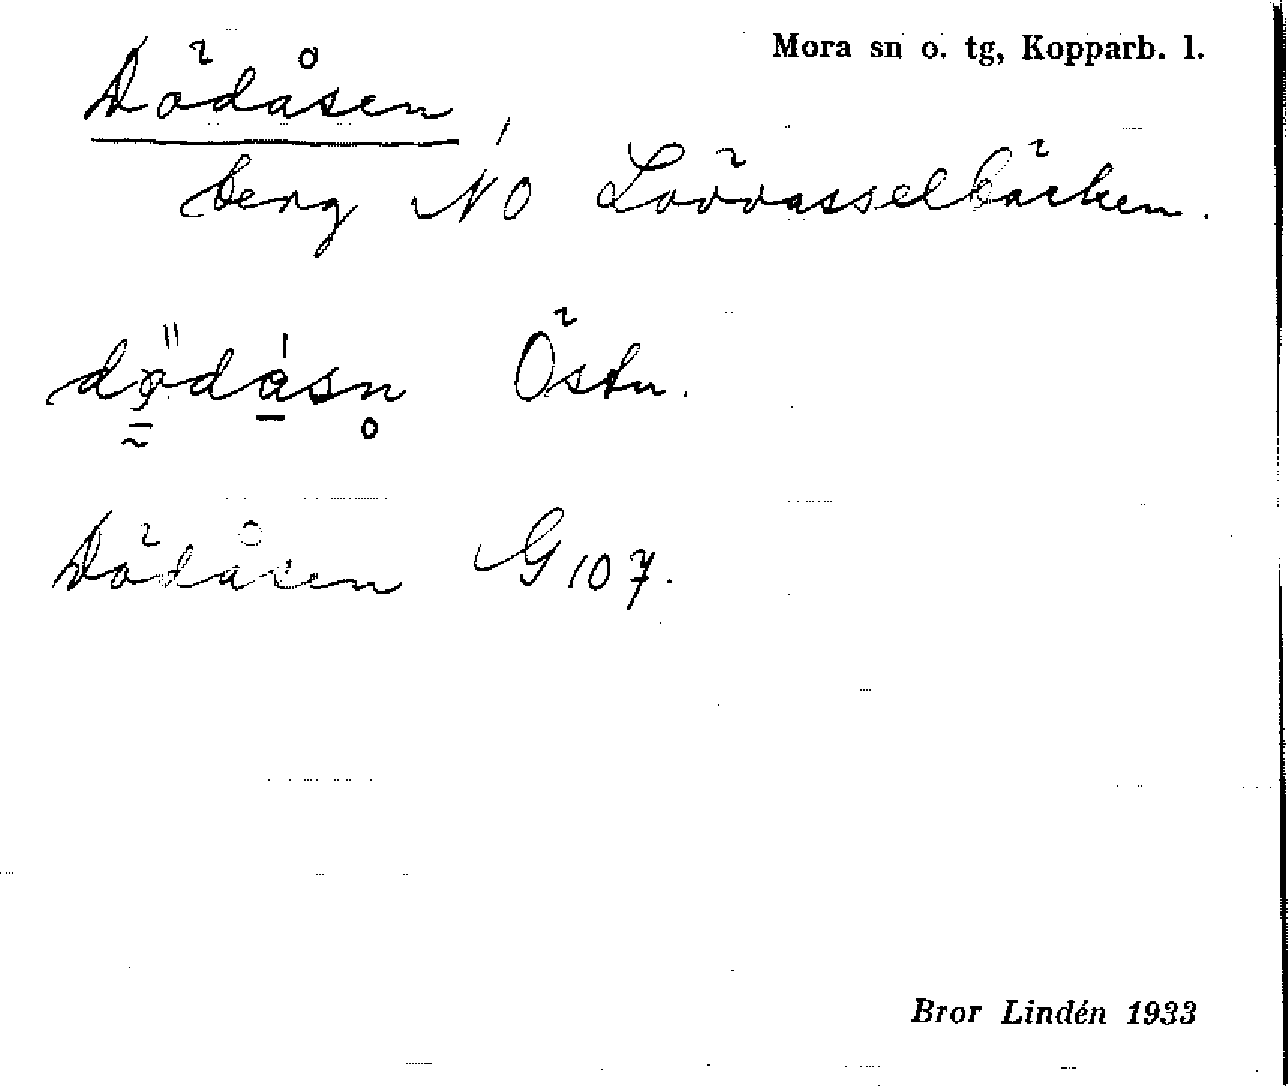 Mora sn o. tg, Kopparb. l.
Dödåsen,
berg NO Lövvasselbäcken.
dödåsn Östn.
Dödåsen G 107.
Bror Lindén 1933